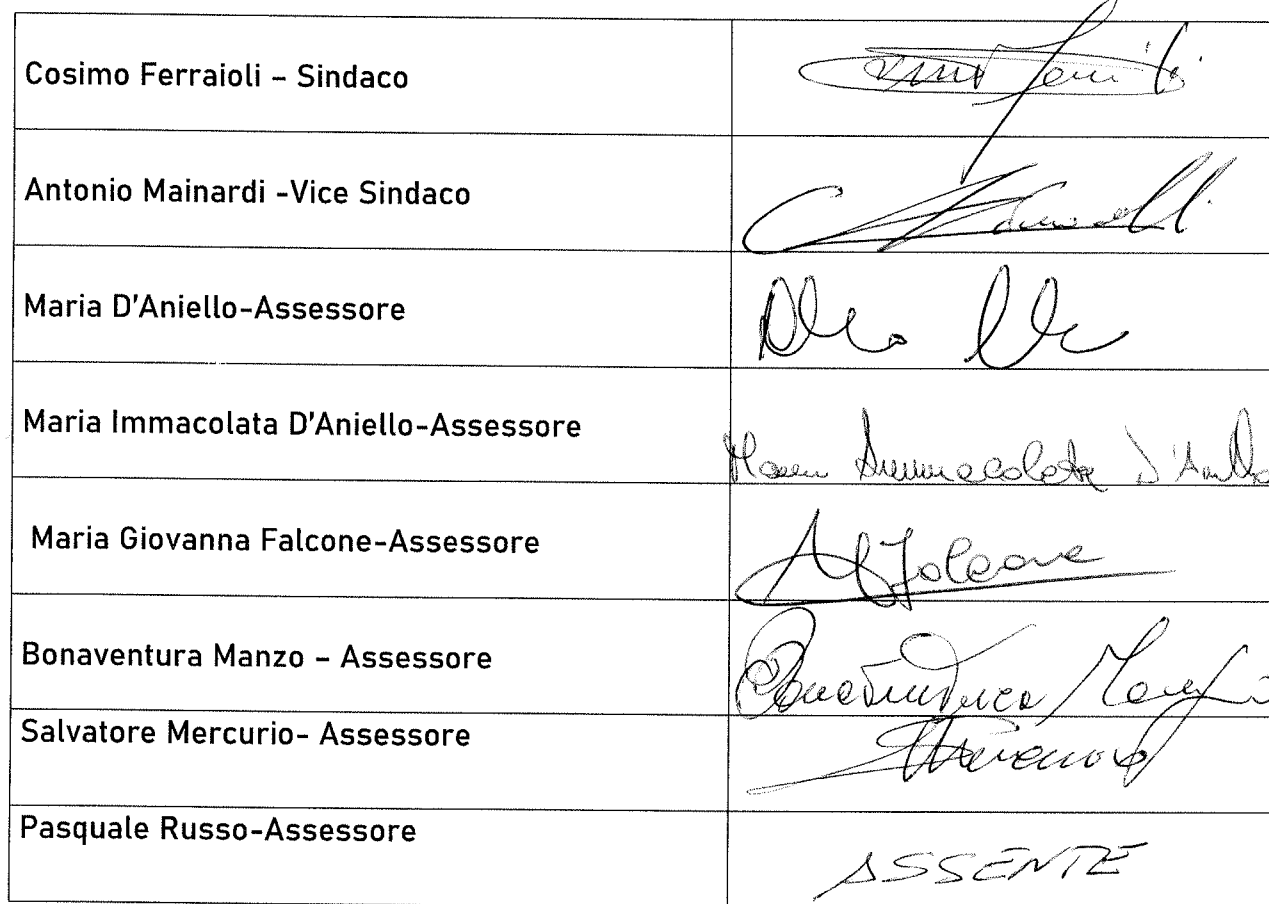 Cosimo Ferraioli – Sindaco
Antonio Mainardi -Vice Sindaco
Maria D'Aniello-Assessore
Maria Immacolata D'Aniello-Assessore
Maria Immacolata D'Aniello
Maria Giovanna Falcone-Assessore
Falcone
Bonaventura Manzo – Assessore
Bonaventura Manzo
Salvatore Mercurio- Assessore
Pasquale Russo-Assessore
ASSENTE